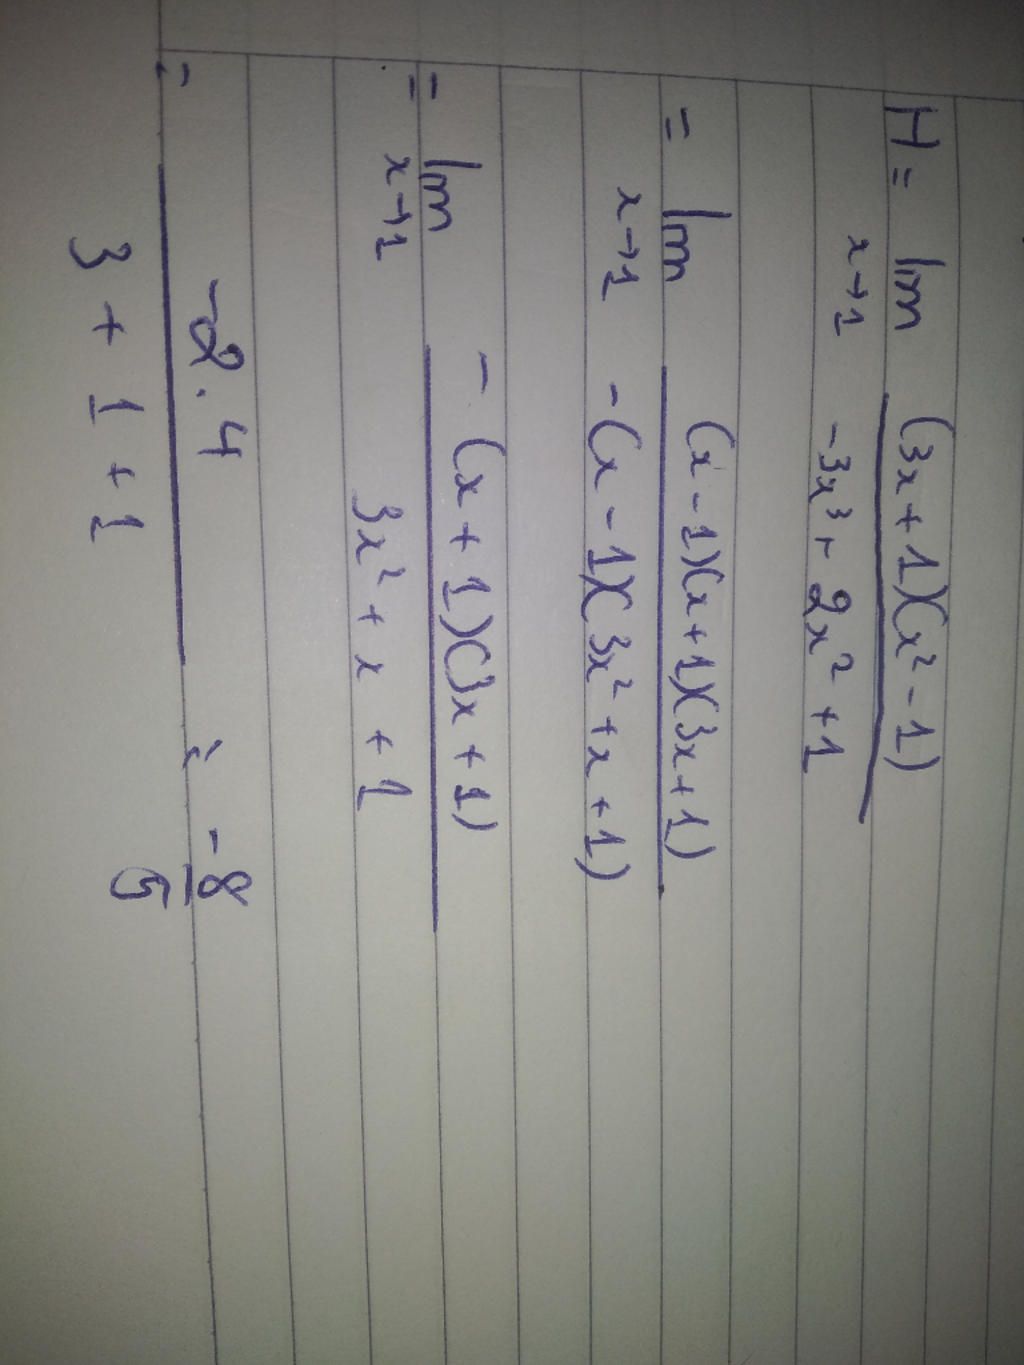 H = lim (3x+1)(x²-1)
x→1 -3x³+2x²+1
= lim (x-1)(x+1)(3x+1)
x→1 -(x-1)(3x²+x+1)
= lim -(x+1)(3x+1)
x→1 3x²+x+1
= -2.4 = -8
3+1+1 5